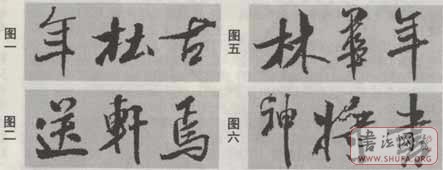 图一
年杜古
图五
林華年
图二
送軒焉
图六
神將
書法网
WWW.SHUFA.ORG